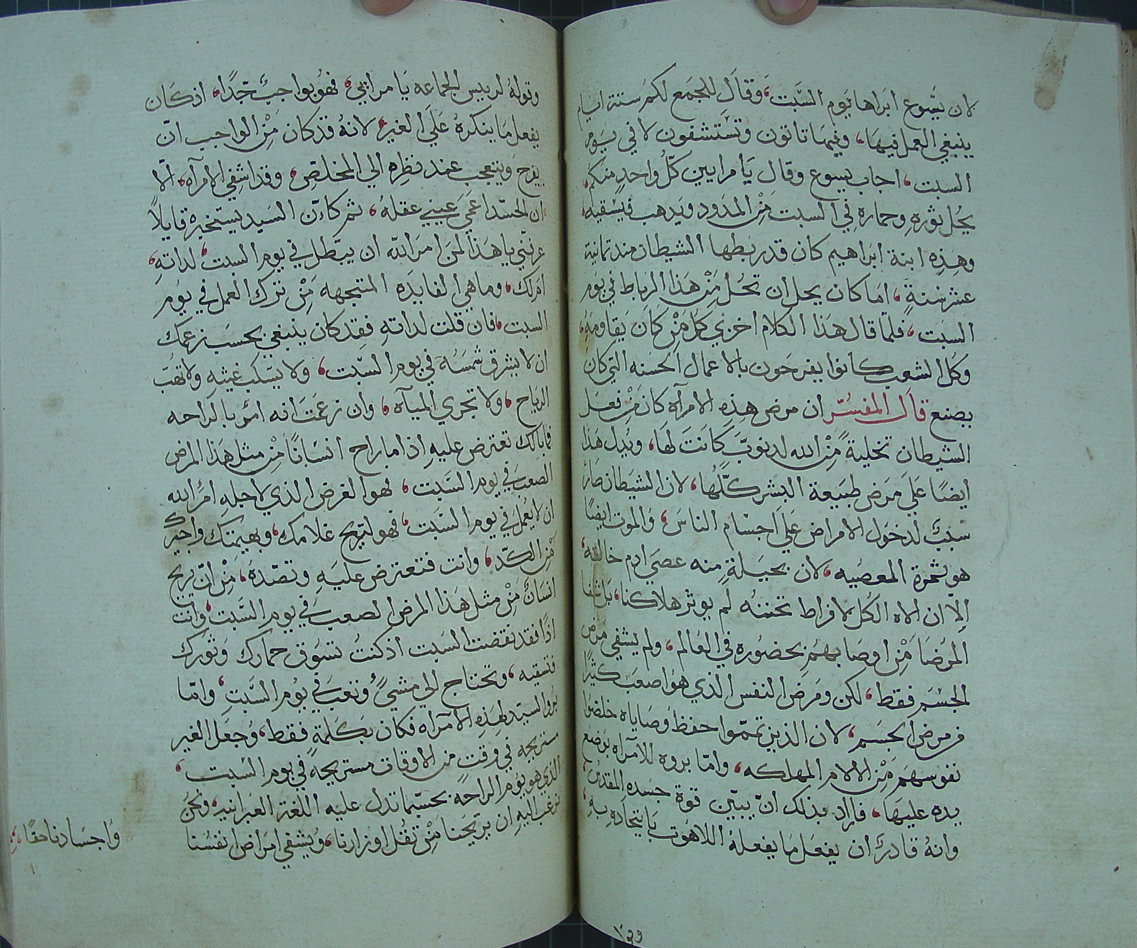 لان يسوع ابراها يوم السبت، وقال للجمع لكم ستة ايام
ينبغي العمل فيها، وفيها تاتون وتستشفون لا في يوم
السبت، اجاب يسوع وقال يا مرايين كل واحد منكم
يحل ثوره وحماره في السبت من المدود ويدهب فيسقيه،
وهذه ابنة ابراهيم كان قد ربطها الشيطان مند تمانية
عشر سنة، اما كان يحل ان تحل من هذا الرباط في يوم
السبت، فلما قال هذا الكلام اخزي كل من كان يقاومه،
وكل الشعب كانوا يفرحون بالاعمال الحسنه التي كان
يصنع قال المفسر ان مرض هذه الامرآه كان من فعل
الشيطان تخلية من الله لدنوب كانت لها، ويدل هذا
ايضا على مرض طبيعة البشر كلها، لان الشيطان صار
سبب لدخول الامراض على اجسام الناس، والموت ايضا
هو ثمرة المعصيه، لان بحيلة منه عصي ادم خالقه،
الا ان الاه الكل لافراط تحننه لم يوثر هلاكنا، بل شفا
المرضا من اوصابهم بحضوره في العالم، ولم يشفي مرض
الجسم فقط، لكن ومرض النفس الذي هو اصعب كثيرا
من مرض الجسم، لان الذين تمموا حفظ وصاياه خلصوا
نفوسهم من الالام المهلكه، واما بروه للامراه بوضع
يده عليها، فاراد بدلك ان يبين قوة جسده المقدس،
وانه قادر ان يفعل ما يفعله اللاهوت باتحاده به،
١٣٩
وقوله لرييس الجماعه يا مرايي، فهو بواجب جدا، اذ كان
يفعل ما ينكره على الغير، لانه قد كان من الواجب ان
يفرح ويتعجب عند نظره الي المخلص، وقد اشفي الامرآه، الا
ان الحسد اعمي عيني عقله، ثم كان السيد يستخبره قايلا
عرفني يا هذا لمن امر الله ان يبطل في يوم السبت، لداته،
ام لك، وما هي الفايده المتجهه من ترك العمل في يوم
السبت، فان قلت لداته فقد كان ينبغي بحسب زعمك
ان لا يشرق شمسه في يوم السبت، ولا يسكب غيثه ولا تهب
الرياح، ولا تجري المياه، وان زعمت انه امر بالراحه
فما بالك تعترض عليه اذا ما راح انسانا من مثل هذا المرض
الصعب في يوم السبت، فهوا الغرض الذي لاجله امر الله
ان لا يعمل في يوم السبت، فهو لتريح غلامك، وبهيمتك واجيرك
من الكد، وانت فتعترض عليه وتصده، من ان يريح
انسان من مثل هذا المرض الصعب في يوم السبت، وانت
اذا فقد نقضت السبت اذ كنت تسوق حمارك وثورك
وتسقيه، وتحتاج الي مشي وتعب في يوم السبت، واما
بروا السيد لهذه الامراه فكان بكلمة فقط، وجعل الغير
مستريحه في وقت من الاوقات مستريحة في يوم السبت،
الذي هو يوم الراحة بحسبما تدل عليه اللغة العبرانيه، ونحن
نرغب اليه ان يريحنا من تقل اوزارنا، ويشفي امراض انفسنا
واجسادنا حقا،